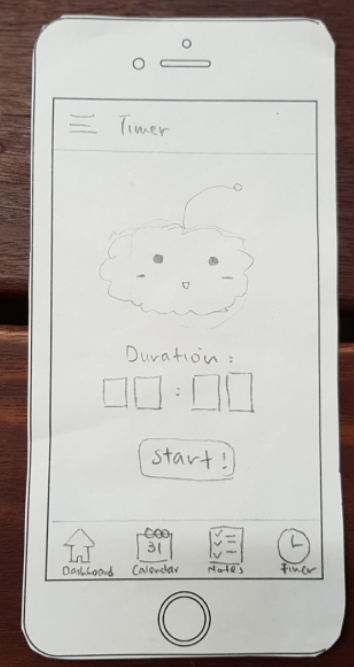 Timer
Duration :
:
Start!
31
Dashboard Calendar Notes Timer